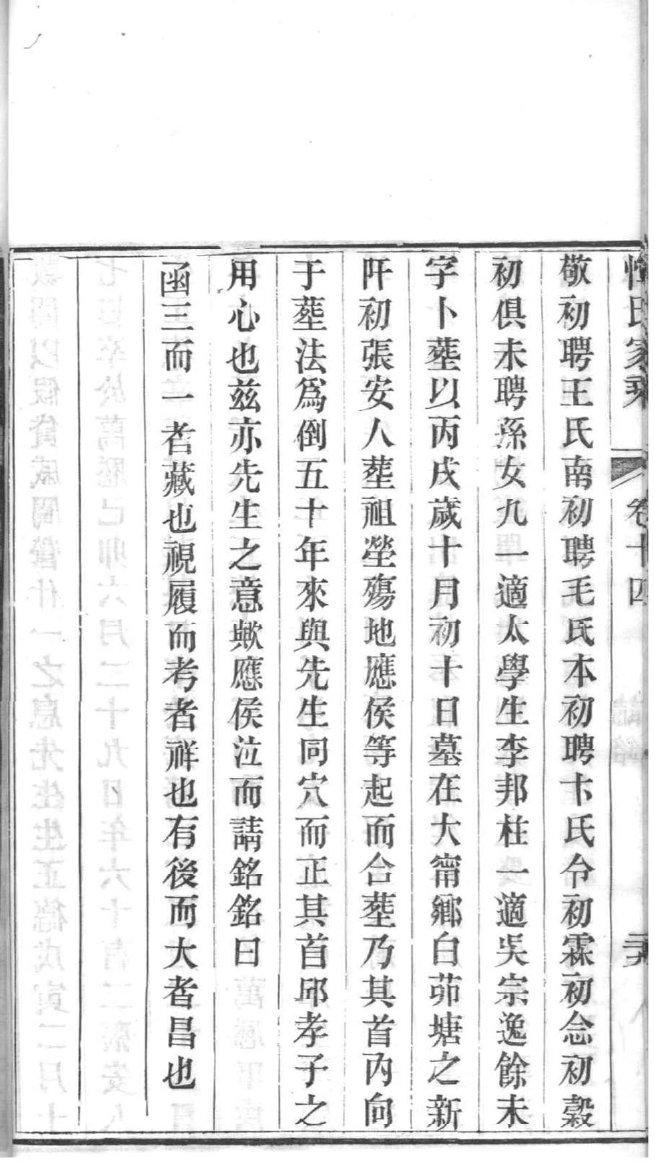 惲氏家乘 卷十四
敬初聘王氏南初聘毛氏本初聘卞氏令初霖初念初穀
初俱未聘孫女九一適太學生李邦柱一適吳宗逸餘未
字卜塟以丙戌歲十月初十日墓在大甯鄉白茆塘之新
阡初張安人塟祖塋殤地應侯等起而合塟乃其首內向
于塟法爲倒五十年來與先生同穴而正其首邱孝子之
用心也兹亦先生之意歟應侯泣而請銘銘曰
函三而一者藏也視履而考者祥也有後而大者昌也